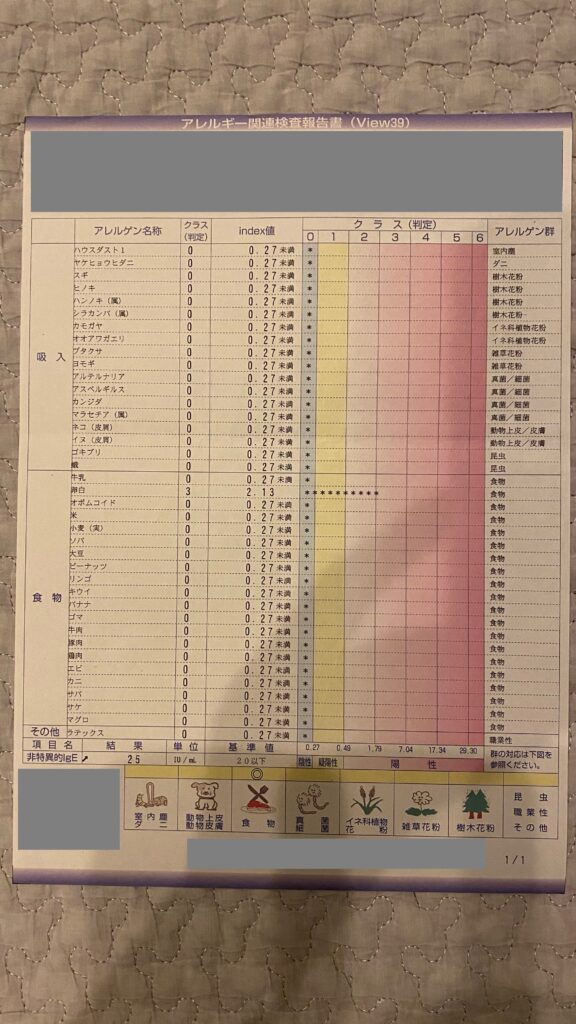 アレルギー関連検査報告書（View39）
アレルゲン名称 クラス（判定） index値 クラス（判定） アレルゲン群
0 1 2 3 4 5 6
吸入
ハウスダスト１ 0 0.27未満 * 室内塵
ヤケヒョウヒダニ 0 0.27未満 * ダニ
スギ 0 0.27未満 * 樹木花粉
ヒノキ 0 0.27未満 * 樹木花粉
ハンノキ（属） 0 0.27未満 * 樹木花粉
シラカンバ（属） 0 0.27未満 * 樹木花粉
カモガヤ 0 0.27未満 * イネ科植物花粉
オオアワガエリ 0 0.27未満 * イネ科植物花粉
ブタクサ 0 0.27未満 * 雑草花粉
ヨモギ 0 0.27未満 * 雑草花粉
アルテルナリア 0 0.27未満 * 真菌／細菌
アスペルギルス 0 0.27未満 * 真菌／細菌
カンジダ 0 0.27未満 * 真菌／細菌
マラセチア（属） 0 0.27未満 * 真菌／細菌
ネコ（皮屑） 0 0.27未満 * 動物上皮／皮膚
イヌ（皮屑） 0 0.27未満 * 動物上皮／皮膚
ゴキブリ 0 0.27未満 * 昆虫
蛾 0 0.27未満 * 昆虫
食物
牛乳 0 0.27未満 * 食物
卵白 3 2.13 *********** 食物
オボムコイド 0 0.27未満 * 食物
米 0 0.27未満 * 食物
小麦（実） 0 0.27未満 * 食物
ソバ 0 0.27未満 * 食物
大豆 0 0.27未満 * 食物
ピーナッツ 0 0.27未満 * 食物
リンゴ 0 0.27未満 * 食物
キウイ 0 0.27未満 * 食物
バナナ 0 0.27未満 * 食物
ゴマ 0 0.27未満 * 食物
牛肉 0 0.27未満 * 食物
豚肉 0 0.27未満 * 食物
鶏肉 0 0.27未満 * 食物
エビ 0 0.27未満 * 食物
カニ 0 0.27未満 * 食物
サバ 0 0.27未満 * 食物
サケ 0 0.27未満 * 食物
マグロ 0 0.27未満 * 食物
その他 ラテックス 0 0.27未満 * 職業性
項目名 結果 単位 基準値 0.27 0.49 1.79 7.04 17.34 29.30 群の対応は下図を
非特異的IgE 25 IU/mL 20以下 陰性 疑陽性 陽性 参照ください。
◎
室内塵 動物上皮 食物 真菌 イネ科植物 雑草花粉 樹木花粉 昆虫
ダニ 動物皮膚 細菌 花粉 職業性
その他
1/1